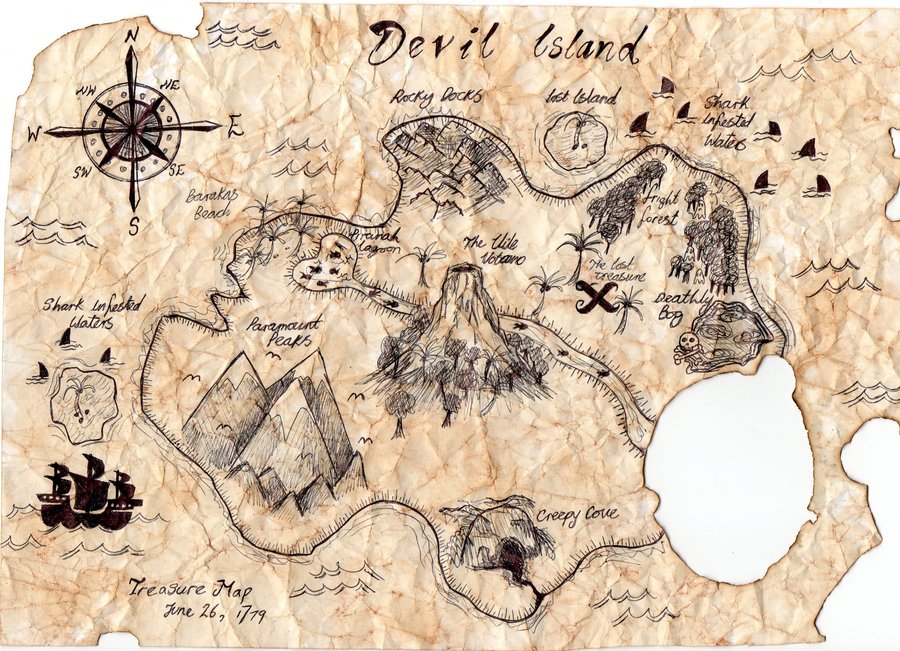 Devil Island
N
NW
NE
W
E
SW
SE
S
Rocky Docks
Lost Island
Shark
Infested
Waters
Barakas
Beach
Piranah
Lagoon
The Vile
Volcano
Fright
Forest
The Lost
Treasure
X
Deathly
Bog
Shark Infested
Waters
Paramount
Peaks
Creepy Cove
Treasure Map
June 26, 1779